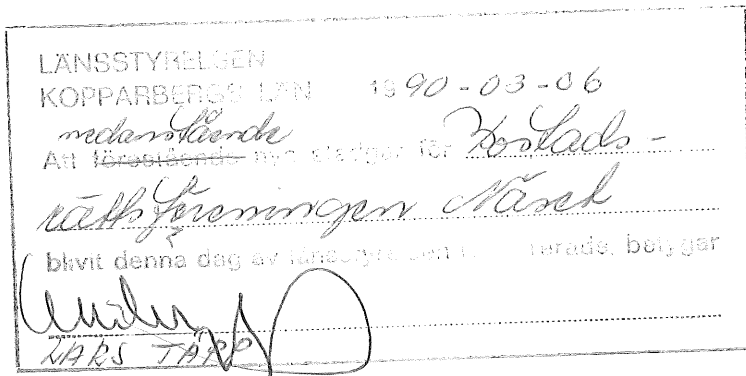 LÄNSSTYRELSEN
KOPPARBERGS LÄN 1990-03-06
nedanstående
Att förestående nya stadgar för Bostads-
rättsföreningen Näset
blivit denna dag av länsstyrelsen registrerade, betygar
LARS